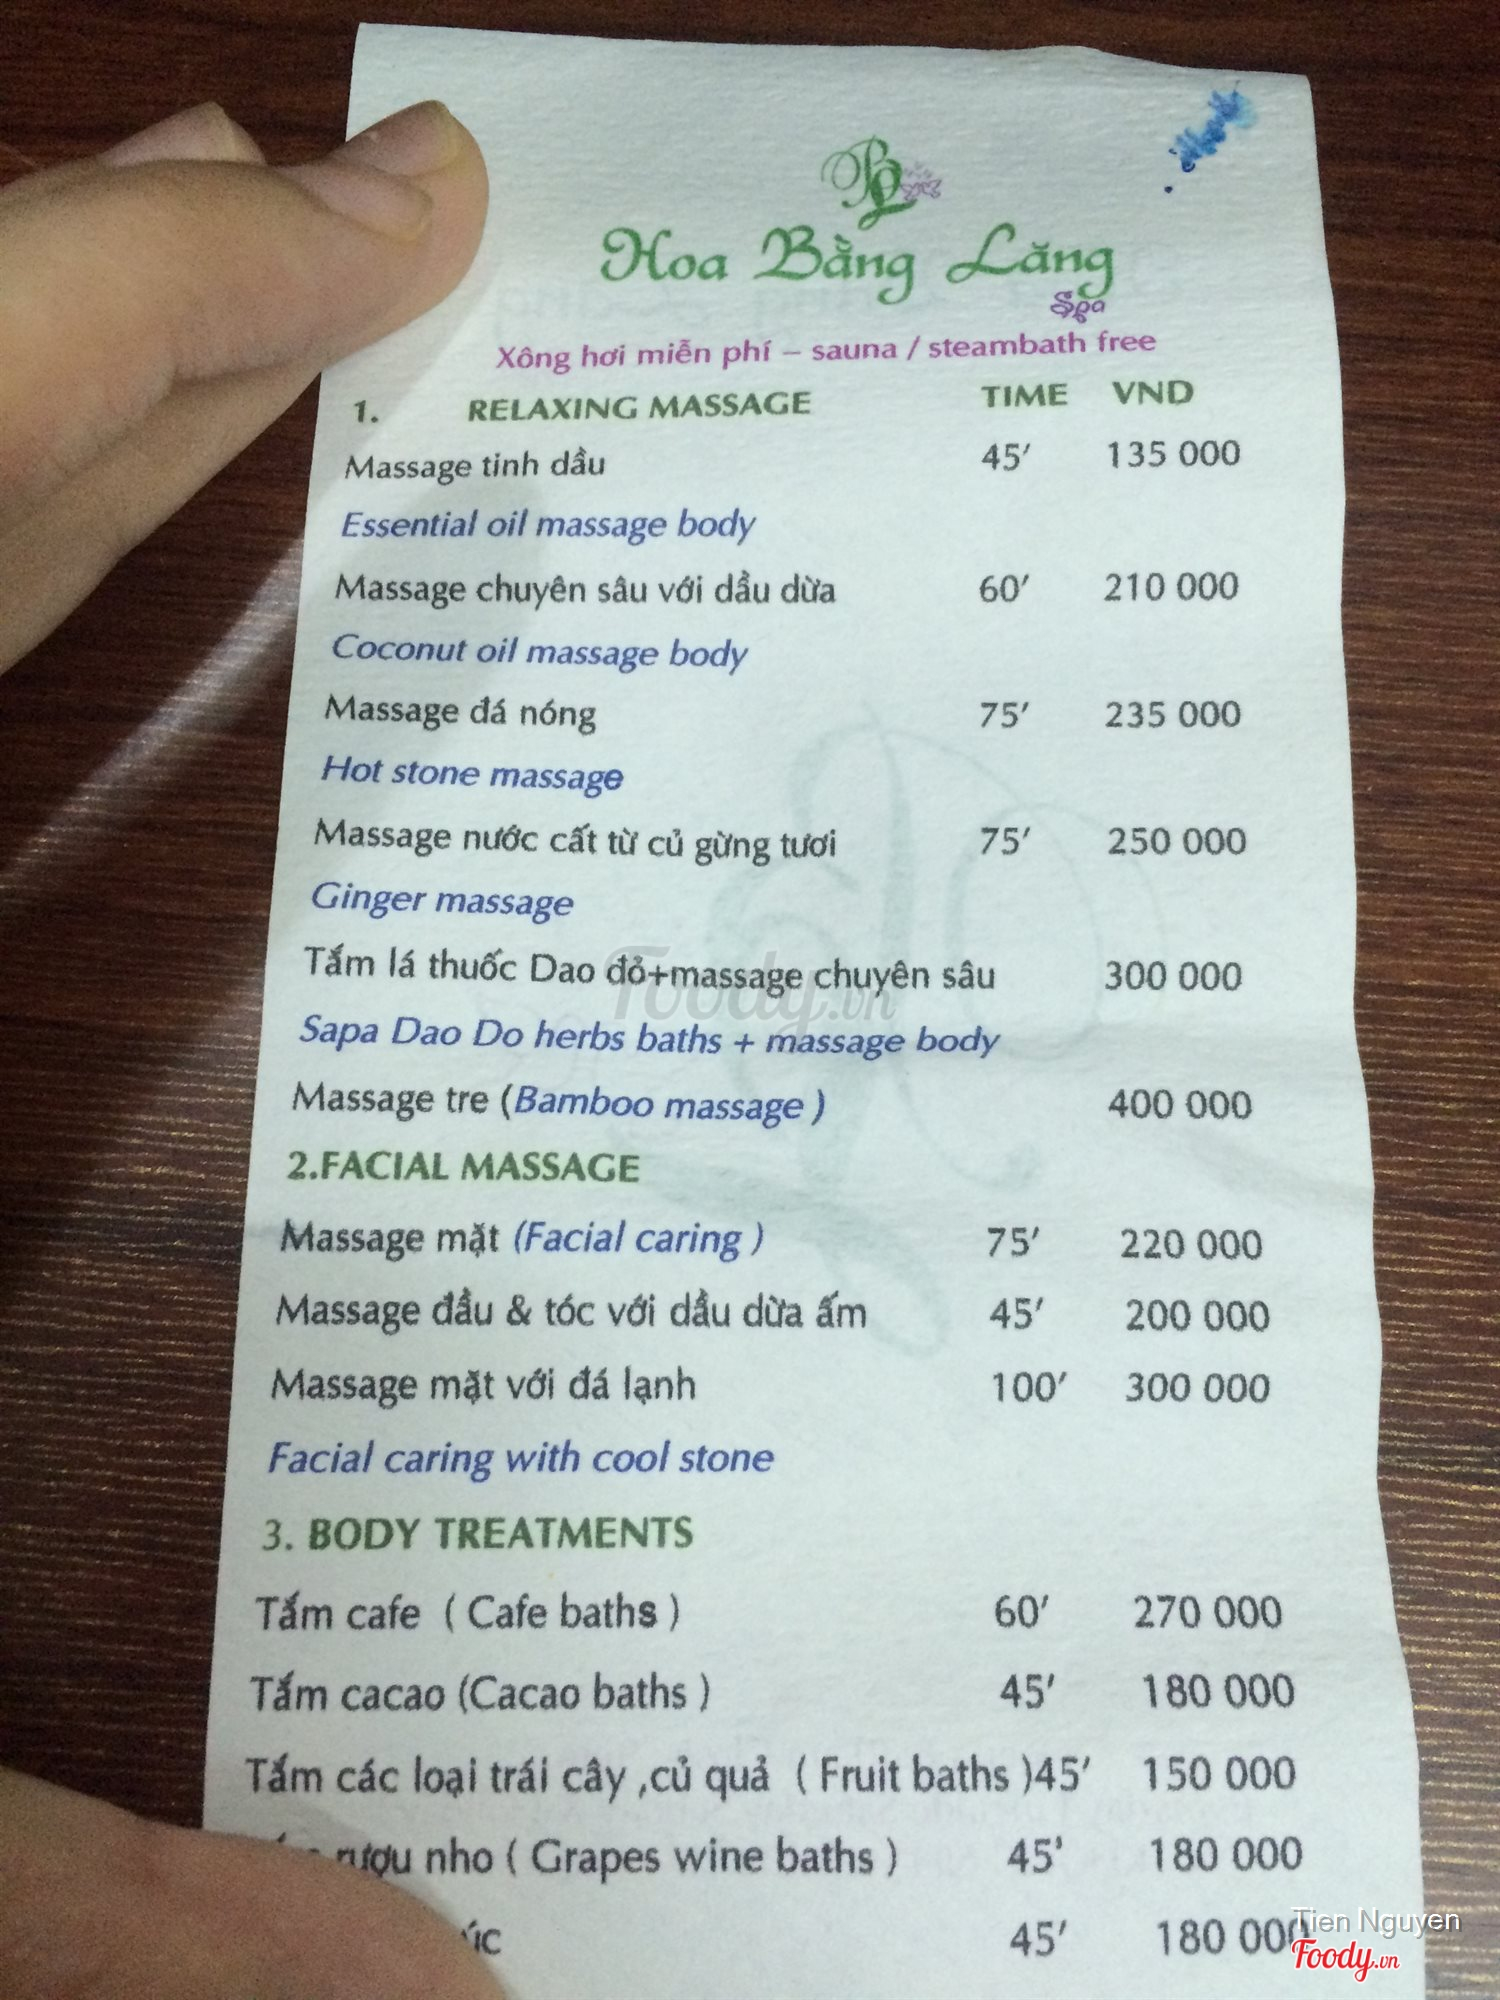 Hoa Bằng Lăng
Spa
Xông hơi miễn phí – sauna / steambath free
1. RELAXING MASSAGE TIME VND
Massage tinh dầu 45' 135 000
Essential oil massage body
Massage chuyên sâu với dầu dừa 60' 210 000
Coconut oil massage body
Massage đá nóng 75' 235 000
Hot stone massage
Massage nước cất từ củ gừng tươi 75' 250 000
Ginger massage
Tắm lá thuốc Dao đỏ+massage chuyên sâu 300 000
Foody.vn
Sapa Dao Do herbs baths + massage body
Massage tre (Bamboo massage ) 400 000
2.FACIAL MASSAGE
Massage mặt (Facial caring ) 75' 220 000
Massage đầu & tóc với dầu dừa ấm 45' 200 000
Massage mặt với đá lạnh 100' 300 000
Facial caring with cool stone
3. BODY TREATMENTS
Tắm cafe ( Cafe baths ) 60' 270 000
Tắm cacao (Cacao baths ) 45' 180 000
Tắm các loại trái cây ,củ quả ( Fruit baths )45' 150 000
rượu nho ( Grapes wine baths ) 45' 180 000
45' 180 000
Tien Nguyen
Foody.vn